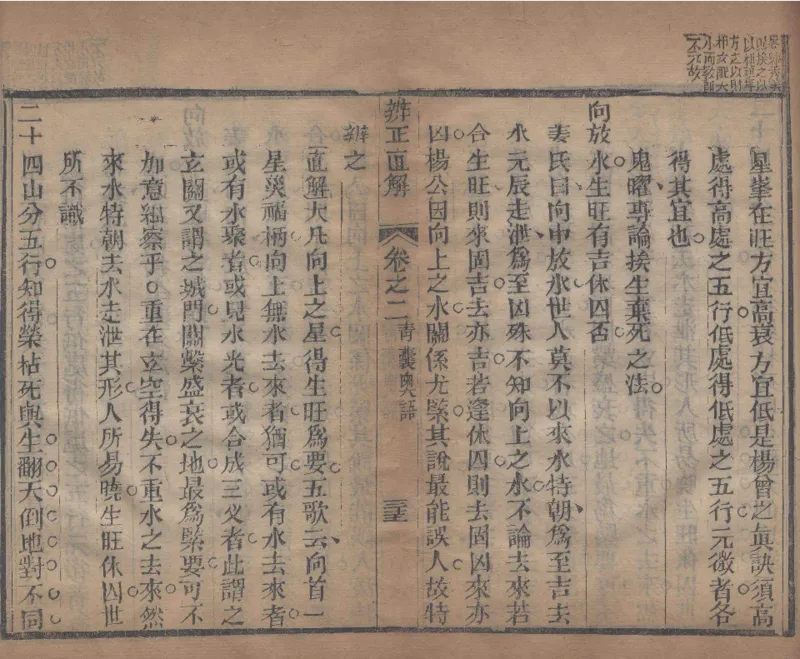 星峯在旺方宜高衰方宜低是楊曾之眞訣須高
處得高處之五行低處得低處之五行元微者各
得其宜也
鬼曜專論挨生棄死之法
向放水生旺有吉休囚否
姜氏曰向中放水世人莫不以來水特朝爲至吉去
水元辰走泄爲至凶殊不知向上之水不論去來若
合生旺則來固吉去亦吉若逢休囚則去固凶來亦
凶楊公因向上之水關係尤緊其說最能誤人故特
辨正直解 卷之二 青囊奧語
辨之
直解大凡向上之星得生旺爲要五歌云向首一
星災福柄向上無水去來者猶可或有水去來者
或有水聚者或見水光者或合成三义者此謂之
玄關又謂之城門關緊盛衰之地最爲緊要可不
加意細察乎○重在立空得失不重水之去來然
來水特朝去水走泄其形人所易曉生旺休囚世
所不識
二十四山分五行知得榮枯死與生翻天倒地對不同